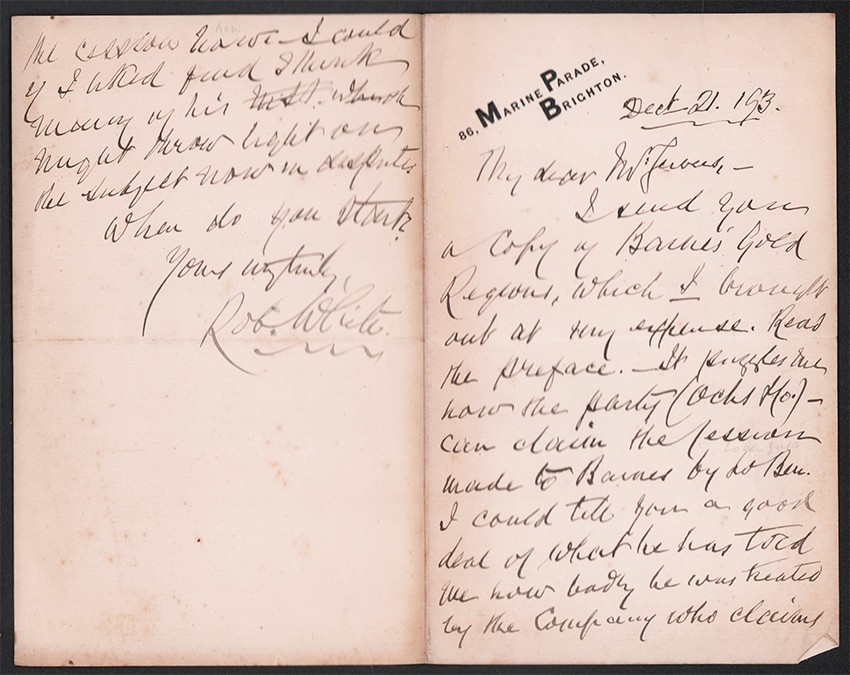 86, MARINE PARADE,
BRIGHTON.
Dect 21. 193.
My dear Mr
I send you
a copy of Baines's Gold
Regions, which I brought
out at my expense. Read
the preface. - It puzzles me
how the party (Ochs & Co.) -
can claim the Cession
made to Baines by Lo Ben.
I could tell you a good
deal of what he has told
me how badly he was treated
by the Company who claims
the cession now - I could
if I liked find I think
many of his which
might throw light on
the subject now in dispute.
When do you start?
Yours very truly,
Rob. White.